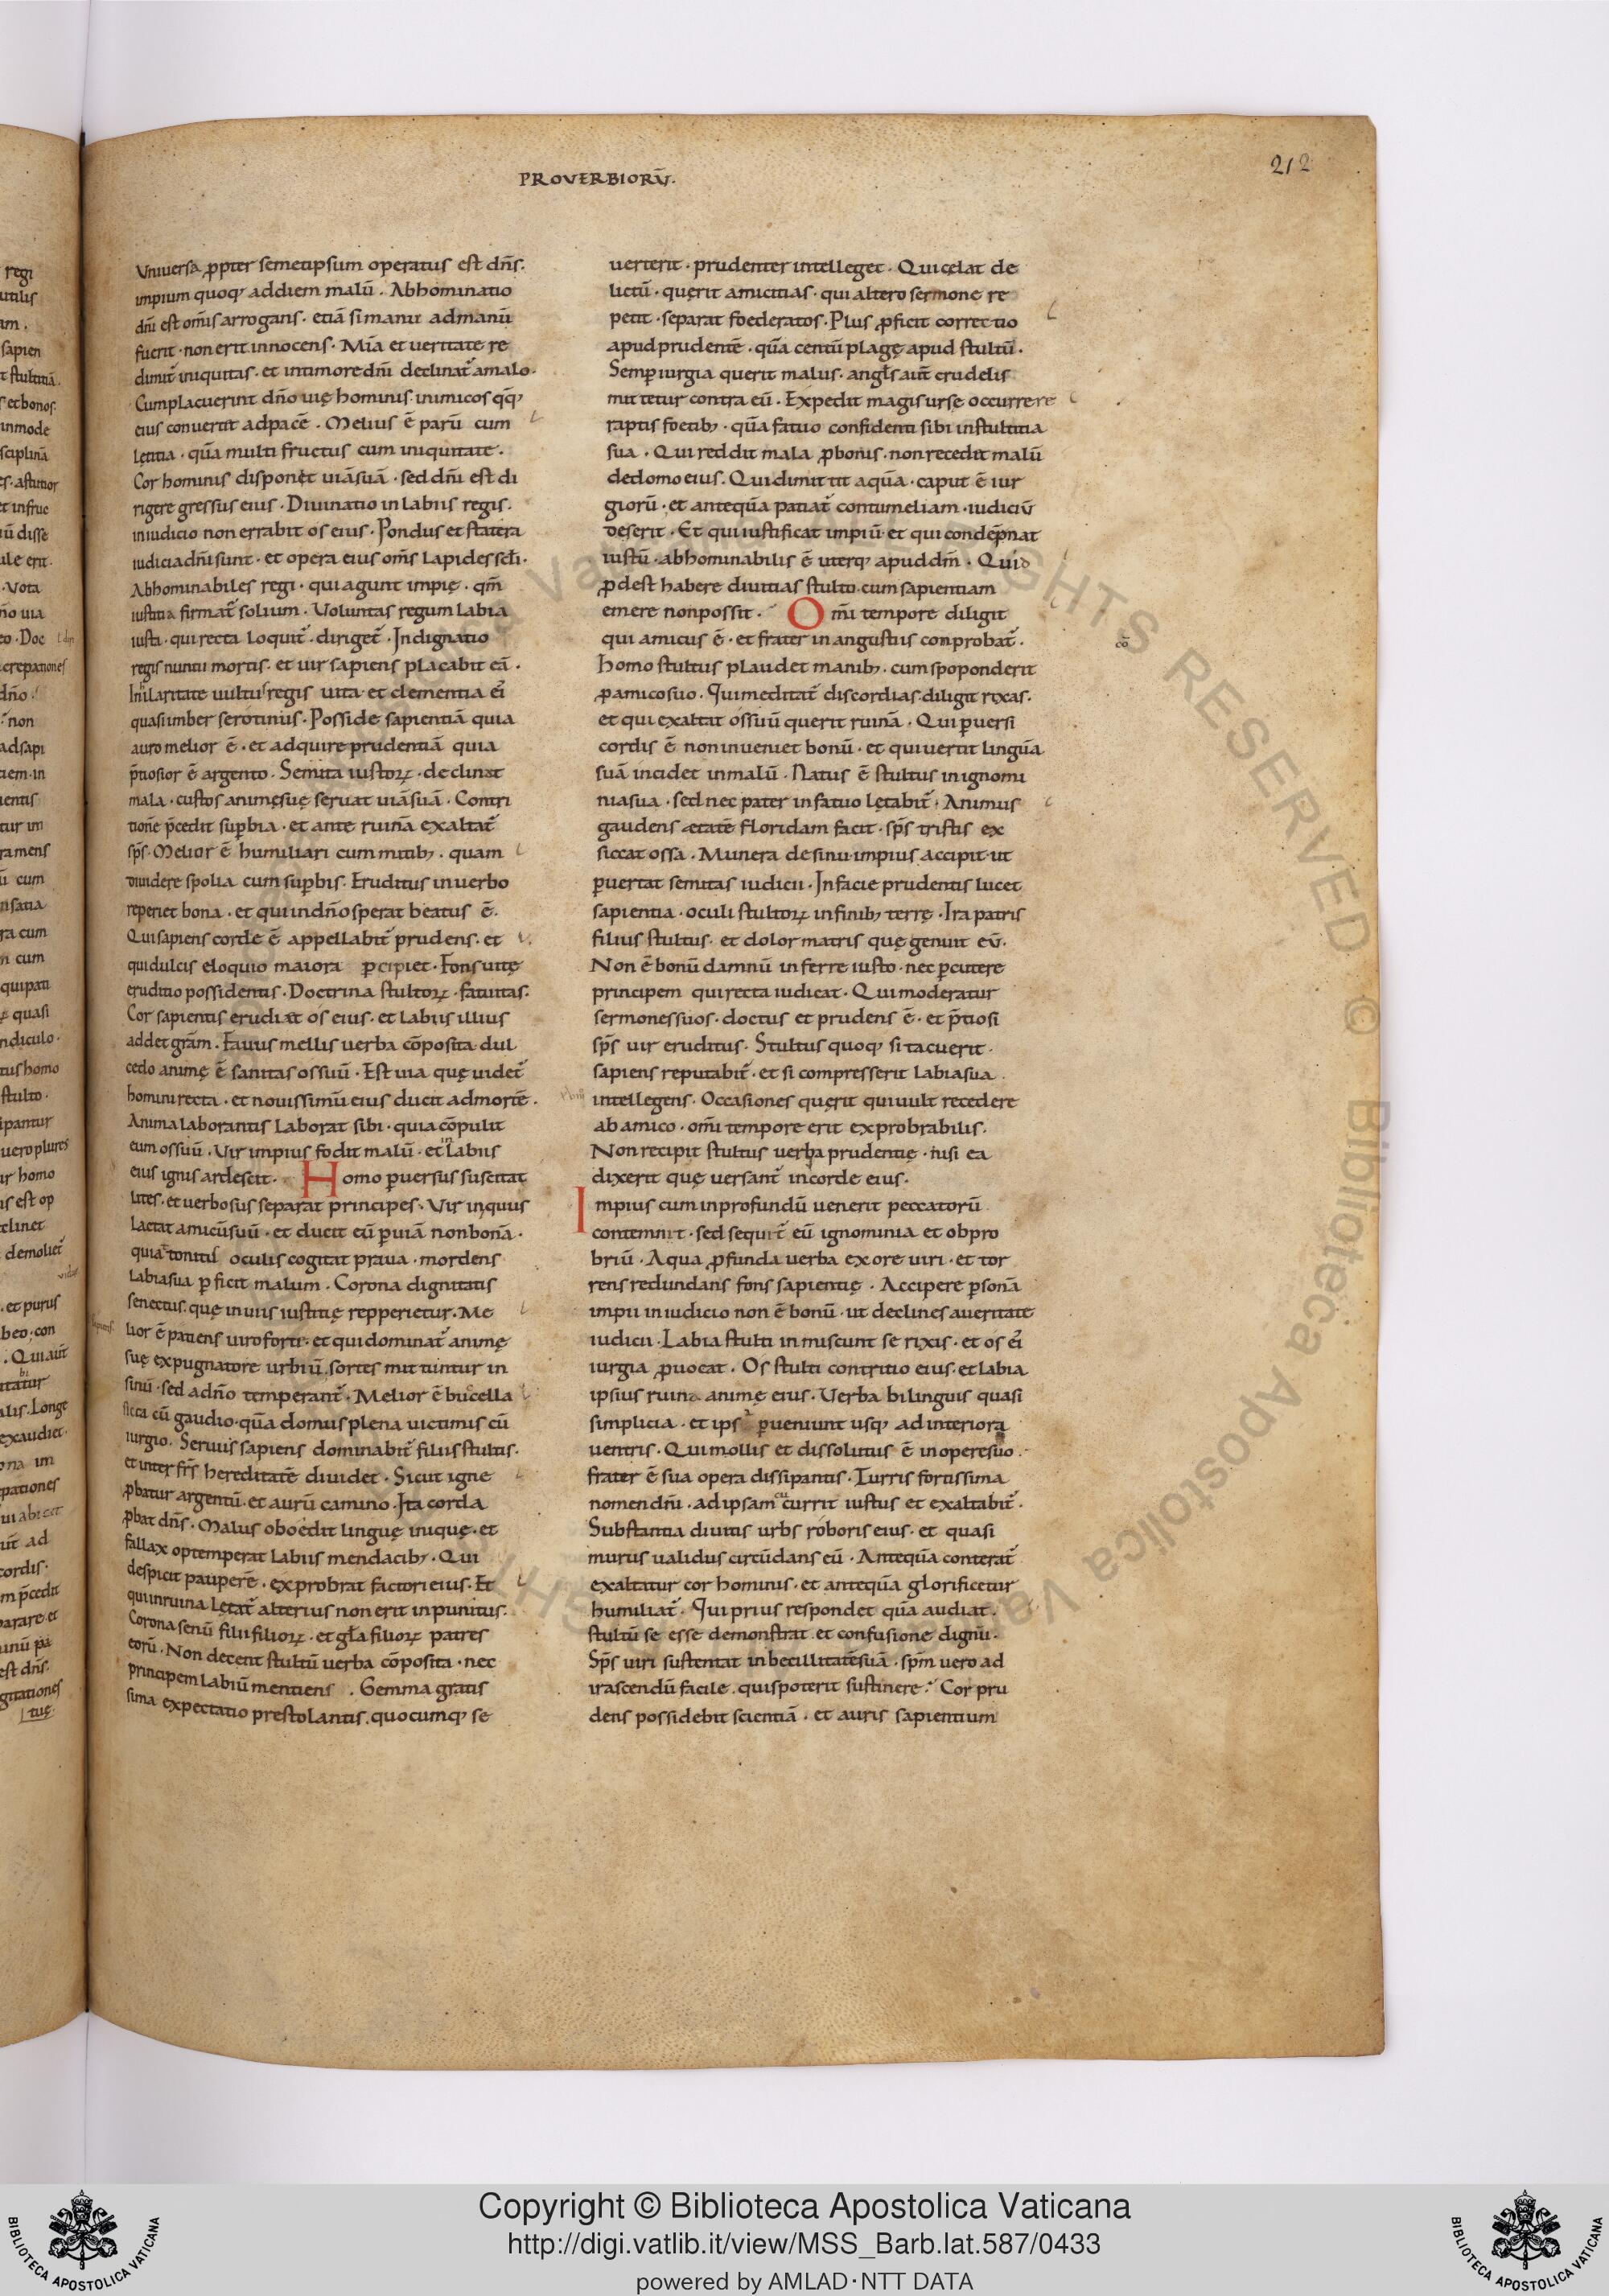 PROVERBIORŪ.
212
Vniuersa ꝓpter semetipsum operatus est dñs.
impium quoq; ad diem malū. Abhominatio
dñi est om̄is arrogans. etiā si manu ad manū
fuerit. non erit innocens. Mīa et ueritate re
dimit̄ iniquitas. et in timore dñi declinat̄ a malo.
Cum placuerint dño uię hominis. inimicos qq;
eius conuertit ad pacē. Melius ē parū cum
lętitia. quā multi fructus cum iniquitate.
Cor hominis disponęt uiā suā. sed dñi est di
rigere gressus eius. Diuinatio in labiis regis.
in iudicio non errabit os eius. Pondus et statera
iudicia dñi sunt. et opera eius om̄s lapides scłi.
Abhominabiles regi. qui agunt impię. qm̄
iustitia firmat̄ solium. Voluntas regum labia
iusta. qui recta loquit̄. diriget̄. Indignatio
regis nuntii mortis. et uir sapiens placabit eā.
In hilaritate uultus regis uita. et clementia ei
quasi imber serotinus. Posside sapientiā quia
auro melior ē. et adquire prudentiā quia
p̄tiosior ē argento. Semita iustoꝝ. declinat
mala. custos animę suę seruat uiā suā. Contri
tionē p̄cedit supbia. et ante ruinā exaltat̄
sp̄s. Melior ē humiliari cum mitib;. quam
diuidere spolia cum supbis. Eruditus in uerbo
reperiet bona. et qui in dño sperat beatus ē.
Qui sapiens corde ē appellabit̄ prudens. et
qui dulcis eloquio maiora ꝑcipiet. Fons uitę
eruditio possidentis. Doctrina stultoꝝ. fatuitas.
Cor sapientis erudiat os eius. et labiis illius
addet grām. Fauus mellis uerba cōposita. dul
cedo animę ē sanitas ossuū. Est uia quę uidet̄
homini recta. et nouissimū eius ducit ad mortē.
Anima laborantis laborat sibi. quia cōpulit
eum os suū. Vir impius fodit malū. et in labiis
eius ignis ardescit. Homo ꝑuersus suscitat
lites. et uerbosus separat principes. Vir iniquus
lactat amicū suū. et ducit eū ꝑ uiā non bonā.
qui attonitis oculis cogitat praua. mordens
labia sua ꝑficit malum. Corona dignitatis
senectus. quę in uiis iustitię repperietur. Me
lior ē patiens uiro forti. et qui dominat̄ animę
suę expugnatore urbiū. sortes mittuntur in
sinū. sed a dño temperant̄. Melior ē buccella
sicca cū gaudio. quā domus plena uictimis cū
iurgio. Seruus sapiens dominabit̄ filiis stultis.
et inter fr̄s hereditatē diuidet. Sicut igne
ꝓbatur argentū. et aurū camino. Ita corda
ꝓbat dñs. Malus oboedit linguę iniquę. et
fallax optemperat labiis mendacib;. Qui
despicit pauperē. exprobrat factori eius. Et
qui in ruina lętat̄ alterius non erit inpunitus.
Corona senū filii filioꝝ. et głā filioꝝ patres
eorū. Non decent stultū uerba cōposita. nec
principem labiū mentiens. Gemma gratis
sima expectatio prestolantis. quocumq; se
uerterit. prudenter intelleget. Qui cęlat de
lictū. quęrit amicitias. qui altero sermone re
petit. separat foederatos. Plus ꝓficit correctio
apud prudentē. quā centū plagę apud stultū.
Semꝑ iurgia querit malus. angl̄s aut̄ crudelis
mittetur contra eū. Expedit magis urse occurrere
raptis foetib;. quā fatuo confidenti sibi in stultitia
sua. Qui reddit mala ꝓ bonis. non recedit malū
de domo eius. Qui dimittit aquā. caput ē iur
giorū. et antequā patiat̄ contumeliam. iudiciū
deserit. Et qui iustificat impiū. et qui condēpnat
iustū. abhominabilis ē uterq; apud dm̄. Quid
ꝓdest habere diuitias stulto. cum sapientiam
emere non possit. Om̄i tempore diligit
qui amicus ē. et frater in angustiis conprobat̄.
cō
homo stultus plaudet manib;. cum spoponderit
ꝓ amico suo. Qui meditat̄ discordias. diligit rixas.
et qui exaltat ossuū querit ruinā. Qui ꝑuersi
cordis ē non inueniet bonū. et qui uertit linguā
suā incidet in malū. Natus ē stultus in ignomi
nia sua. sed nec pater in fatuo lętabit̄. Animus
gaudens ætatē floridam facit. sp̄s tristis ex
siccat ossa. Munera de sinu impius accipit. ut
ꝑuertat semitas iudicii. In facie prudentis lucet
sapientia. oculi stultoꝝ in finib; terrę. Ira patris
filius stultus. et dolor matris quę genuit eū.
Non ē bonū damnū inferre iusto. nec ꝑcutere
principem qui recta iudicat. Qui moderatur
sermones suos. doctus et prudens ē. et p̄tiosi
sp̄s uir eruditus. Stultus quoq; si tacuerit.
sapiens reputabit̄. et si compresserit labia sua.
intellegens. Occasiones quęrit qui uult recedere
ab amico. om̄i tempore erit exprobrabilis.
Non recipit stultus uerba prudentię. nisi ea
dixerit quę uersant̄ in corde eius.
Impius cum in profundū uenerit peccatorū
contemnit. sed sequit̄ eū ignominia et obpro
briū. Aqua ꝓfunda uerba ex ore uiri. et tor
rens redundans fons sapientię. Accipere ꝑsonā
impii in iudicio non ē bonū. ut declines a ueritate
iudicii. Labia stulti inmiscunt se rixis. et os ei
iurgia ꝓuocat. Os stulti contritio eius. et labia
ipsius ruina animę eius. Verba bilinguis quasi
simplicia. et ipsa ꝑueniunt usq; ad interiora
uentris. Qui mollis et dissolutus ē in opere suo.
frater ē sua opera dissipantis. Turris fortissima
nomen dñi. ad ipsam currit iustus et exaltabit̄.
Substantia diuitis urbs roboris eius. et quasi
murus ualidus circūdans eū. Antequā conterat̄
exaltatur cor hominis. et antequā glorificetur
humiliat̄. Qui prius respondet quā audiat.
stultū se esse demonstrat et confusione dignū.
Sp̄s uiri sustentat inbecillitatē suā. sp̄m uero ad
irascendū facile. quis poterit sustinere? Cor pru
dens possidebit scientiā. et auris sapientium
Copyright © Biblioteca Apostolica Vaticana
http://digi.vatlib.it/view/MSS_Barb.lat.587/0433
powered by AMLAD·NTT DATA
BIBLIOTECA APOSTOLICA VATICANA
BIBLIOTECA APOSTOLICA VATICANA